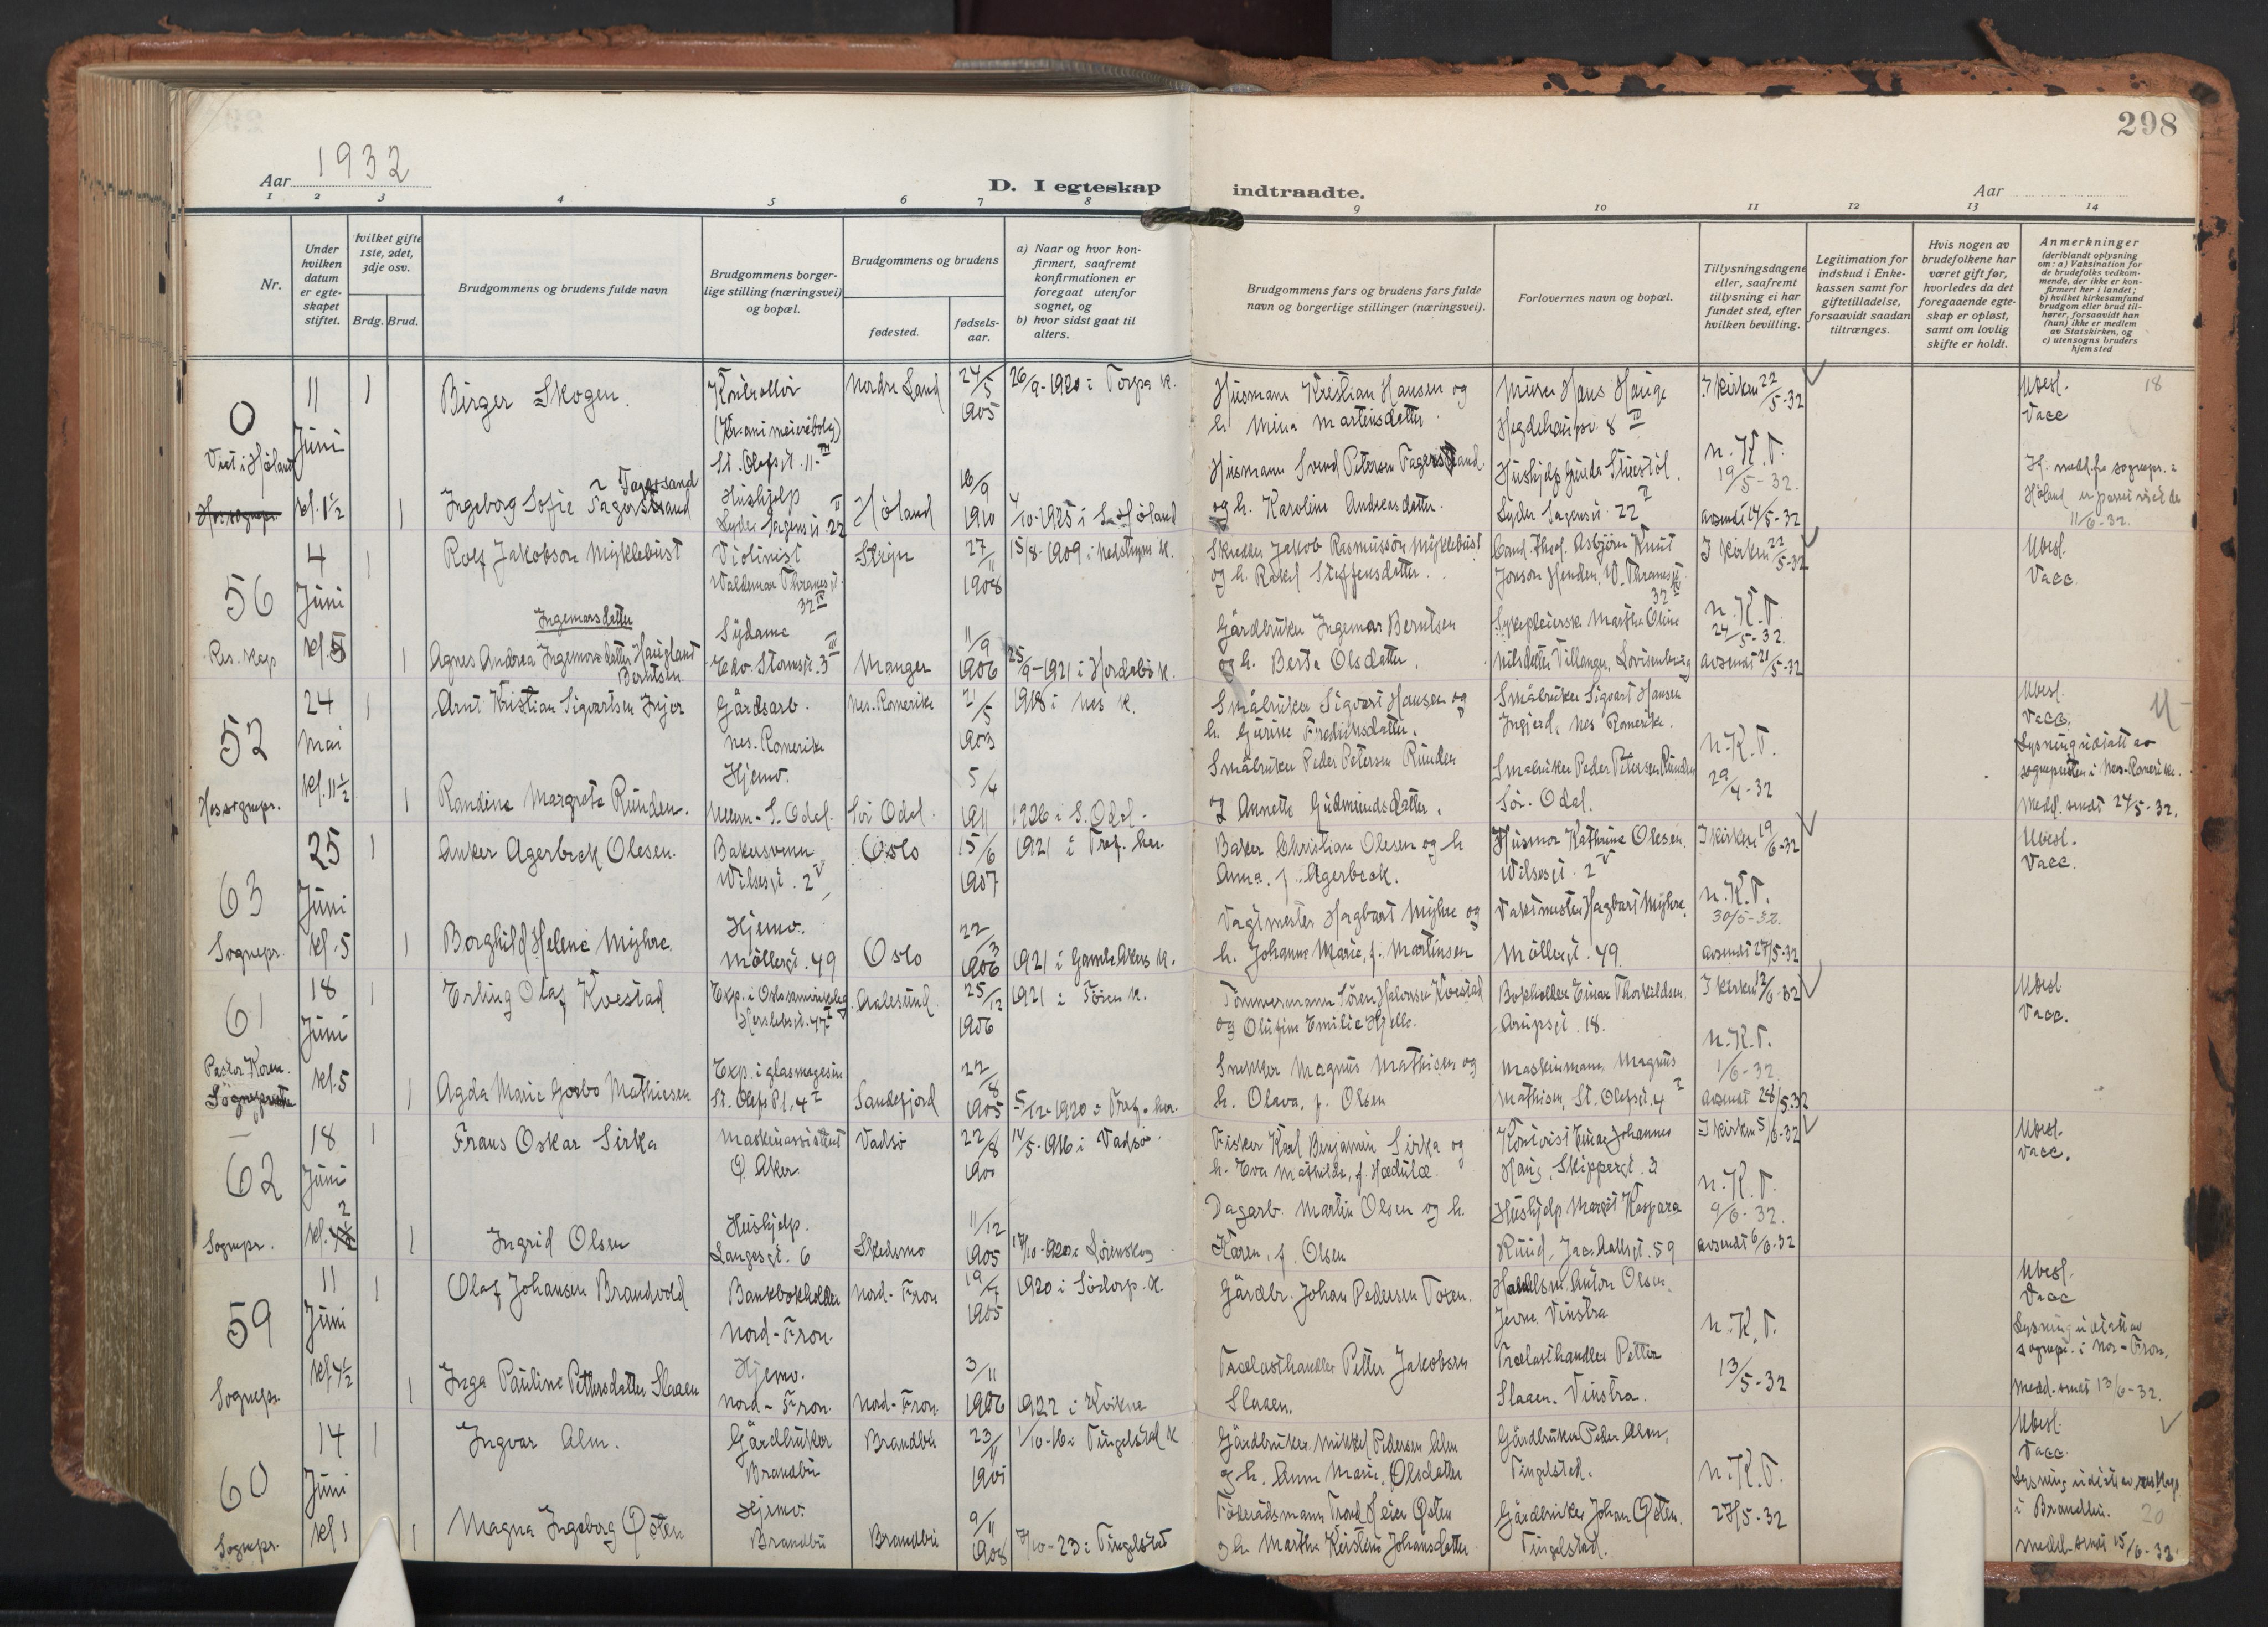 298
Aar 1932
D. I egteskap indtraadte.
Aar
1 2 3 4 5 6 7 8 9 10 11 12 13 14
Nr.
Under hvilken datum er egteskapet stiftet.
hvilket gifte 1ste, 2det, 3dje osv.
Brdg. Brud.
Brudgommens og brudens fulde navn
Brudgommens borgerlige stilling (næringsvei) og bopæl.
Brudgommens og brudens
fødested.
fødselsaar.
a) Naar og hvor konfirmert, saafremt konfirmationen er foregaat utenfor sognet, og
b) hvor sidst gaat til alters.
Brudgommens fars og brudens fars fulde navn og borgerlige stillinger (næringsvei).
Forlovernes navn og bopæl.
Tillysningsdagene eller, saafremt tillysning ei har fundet sted, efter hvilken bevilling.
Legitimation for indskud i Enkekassen samt for giftetilladelse, forsaavidt saadan tiltrænges.
Hvis nogen av brudefolkene har været gift før, hvorledes da det foregaaende egteskap er opløst, samt om lovlig skifte er holdt.
Anmerkninger (deriblandt oplysning om: a) Vaksination for de brudefolks vedkommende, der ikke er konfirmert her i landet; b) hvilket kirkesamfund brudgom eller brud tilhører, forsaavidt han (hun) ikke er medlem av Statskirken, og c) utensogns bruders hjemsted
0
Viet i Høland
11 Juni kl. 1½
1
Birger Skogen.
Kontrollør
St. Olafsgt. 11 III
Nordre Land
24/5 1905
26/9-1920 i Torpa K.
Husmann Kristian Hansen og
h. Mina Martinsdatter.
Murer Hans Hauge
Hegdehaugsv. 8 III
I kirken 22/5-32
Ubesl.
Vacc
18
1
Fagersand
Ingeborg Sofie Fagerstrand
Hushjelp
Lyder Sagensgt. 22 II
Høland
16/9 1910
4/10-1925 i S. Høland
Husmann Svend Petersen Fagerstrand
og h. Karoline Andreasdatter.
Hushjelp Gunda
Lyder Sagensgt. 22 II
n. K. T.
19/5-32.
avsendt 14/5-32
Høland er paret viet der
11/6-32.
56
Res. kap
4 Juni kl. 5
1
Rolf Jakobson Myklebust
Violinist
Waldemar Thranesgt. 32 IV
Stryn
27/11 1908
15/8-1909 i Nedstryns K.
Skredder Jakob Rasmussøn Myklebust
og h. Rakel Steffensdatter.
Cand. Theol. Asbjørn Knut
Jonson Henden, W. Thranesgt. 32 IV
I kirken 22/5-32
Ubesl.
Vacc
1
Ingemarsdatter
Agnes Andrea Ingemarsdatter Haugland
Berntsen
Sydame
Edv. Stormsgt. 3 III
Manger
11/9 1906
25/9-1921 i Hordabø K.
Gårdbruker Ingemar Berntsen
og h. Berta Olsdatter.
Sykepleiersk. Martha Oline
Nilsdatter Villanger, Lovisenberg
n. K. T.
24/5-32.
avsendt 21/5-32
52
Hos sognepr.
24 Mai kl. 11½
1
Arnt Kristian Sigvartsen Injer
Gårdsarb.
Nes. Romerike
Nes. Romerike
21/5 1903
1918 i Nes K.
Småbruker Sigvart Hansen og
h. Gurine Fredriksdatter.
Småbruker Sigvart Hansen
Ingjerd, Nes Romerike.
Ubesl.
Vacc.
Lysning utstedt av
sognepresten i Nes-Romerike.
Medd. sendt 24/5-32.
1
Randine Margrete Runden.
Hjemv.
S. Odal.
Sør Odal.
5/4 1911
1926 i S. Odal.
Småbruker Peder Petersen Runden
og Annette Gudmundsdatter.
Småbruker Peder Petersen Runden
Sør-Odal.
n. K. T.
29/4-32
63
Sognepr.
25 Juni kl. 5
1
Anker Agerbeck Olesen.
Bakersvenn
Wilsesgt. 2 V
Oslo
15/6 1907
1921 i Tref. ker.
Baker Christian Olesen og h
Anna, f. Agerbeck.
Husmor Kathrine Olesen.
Wilsesgt. 2 V
I kirken 19/6-32
Ubesl.
Vacc.
1
Borghild Helene Myhre.
Hjemv.
Møllergt. 49
Oslo
22/3 1906
1921 i Gamle Akers K.
Vagtmester Hagbart Myhre og
h. Johanne Marie, f. Martinsen
Vaktmester Hagbart Myhre.
Møllergt. 49.
n. K. T.
30/5-32.
avsendt 27/5-32
61
Pastor Koren.
Sognepresten
18 Juni kl. 5
1
Erling Olaf Kvestad
Herslebsgt. 47 I
Aalesund.
25/12 1906
1921 i Tøien K.
Tømmermann Søren Halvorsen Kvestad
og Olufine Emilie Hjelle.
Bokholder Einar Thorkildsen.
Arupsgt. 18.
I kirken 12/6-32
Ubesl
Vacc.
1
Agda Marie Gorbo Mathiesen
Exp. i glasmagesin
St. Olafs Pl. 4 I
Sandefjord
22/8 1905
5/12-1920 i Tref. ker.
Snekker Magnus Mathisen og
h. Olava, f. Olsen
Maskinmann Magnus
Mathisen, St. Olafsgt. 4 I
n. K. T.
1/6-32.
avsendt 28/5-32
62
Sognepr.
18 Juni kl. 2
1
Frans Oskar Sirka
Maskinassistent
Ø. Aker
Vadsø
22/8 1900
14/5-1916 i Vadsø
Fisker Karl Benjamin Sirka og
h. Eva Mathilde, f. Hædulæ.
Kontorist Einar Johannes
Haug, Skippergt. 3
I kirken 5/6-32
Ubesl.
Vacc.
1
Ingrid Olsen
Hushjelp.
Langesgt. 6
Skedsmo
11/12 1905
17/10-1920 i Lørenskog
Dagarb. Martin Olsen og h.
Karen, f. Olsen
Hushjelp Margit Kaspara
Ruud, Jac. Aallsgt. 59
n. K. T.
9/6-32.
avsendt 6/6-32
59
Sognepr.
11 Juni kl. 4½
1
Olaf Johansen Brandvold
Bankbokholder
Nord-Fron.
Nord-Fron
19/7 1905
1920 i Sødorp. K.
Gårdbr. Johan Pedersen Toxen.
Handelsm. Anton Olsen.
Jevne, Vinstra
Ubesl.
Vacc
Lysning utstedt av
sognepr. i Nor-Fron.
Medd. sendt 13/6-32.
1
Inga Pauline Pettersdatter Slaaen
Hjemv.
Nord-Fron.
Nord-Fron.
3/11 1906
1922 i Kvikne
Trælasthandler Petter Jakobsen
Slaaen.
Trælasthandler Petter
Slaaen. Vinstra.
n. K. T.
13/5-32
60
Sognepr.
14 Juni kl 1
1
Ingvar Alm.
Gårdbruker
Brandbu
Brandbu
23/11 1901
1/10-16 i Tingelstad K
Gårdbruker Mikkel Pedersen Alm
og h. Anne Marie, Olsdatter
Gårdbruker Peder Alm,
Tingelstad.
Ubesl.
Vacc.
Lysning utstedt av res. kap.
i Brandbu.
20
Medd. sendt 15/6-32
1
Magna Ingeborg Østen
Hjemv.
Brandbu
Brandbu
9/11 1908
7/10-23 i Tingelstad
Føderådsmann Trond Leier Østen
og h. Martha Kirstine Johansdatter
Gårdbruker Johan Østen.
Tingelstad.
n. K. T.
27/5-32